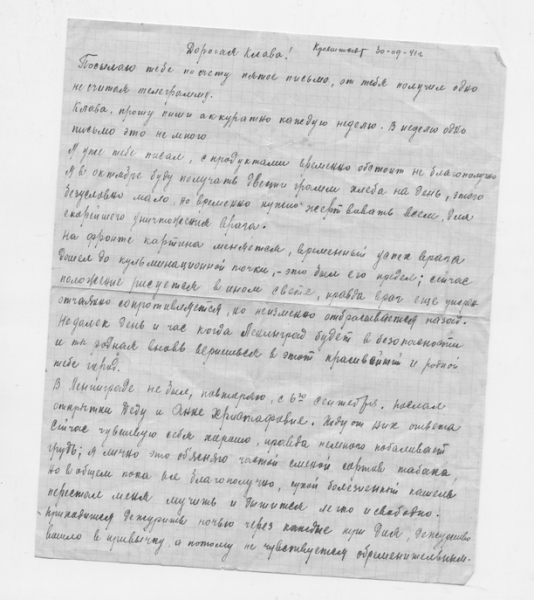 Дорогая Клава! Кронштадт 30-09-41г
Посылаю тебе по счету пятое письмо, от тебя получил одно
не считая телеграмму.
Клава, прошу пиши аккуратно каждую неделю. В неделю одно
письмо это не много
Я уже тебе писал, с продуктами временно обстоит не благополучно
Я в октябре буду получать двести грамм хлеба на день, этого
безусловно мало, но временно нужно жертвовать всем, для
скорейшего уничтожения врага.
На фронте картина меняется, временный успех врага
дошел до кульминационной точки, - это был его предел; сейчас
положение рисуется в ином свете, правда враг еще упорно
отчаянно сопротивляется, но неизменно отбрасывается назад.
Недалек день и час когда Ленинград будет в безопасности
и ты родная вновь вернешься в этот красивый и родной
тебе город.
В Ленинграде не был, повторяю, с 6го сентября. Послал
открытки Деду и Анне Христофоровне. Жду от них ответа
Сейчас чувствую себя хорошо, правда немного побаливает
грудь; я лично это объясняю частой сменой сортов табака,
но в общем пока все благополучно, сухой болезненный кашель
перестал меня мучить и дышится легко и свободно.
Приходится дежурить ночью через каждые три дня, дежурство
вошло в привычку, а потому не чувствуется обременительным.